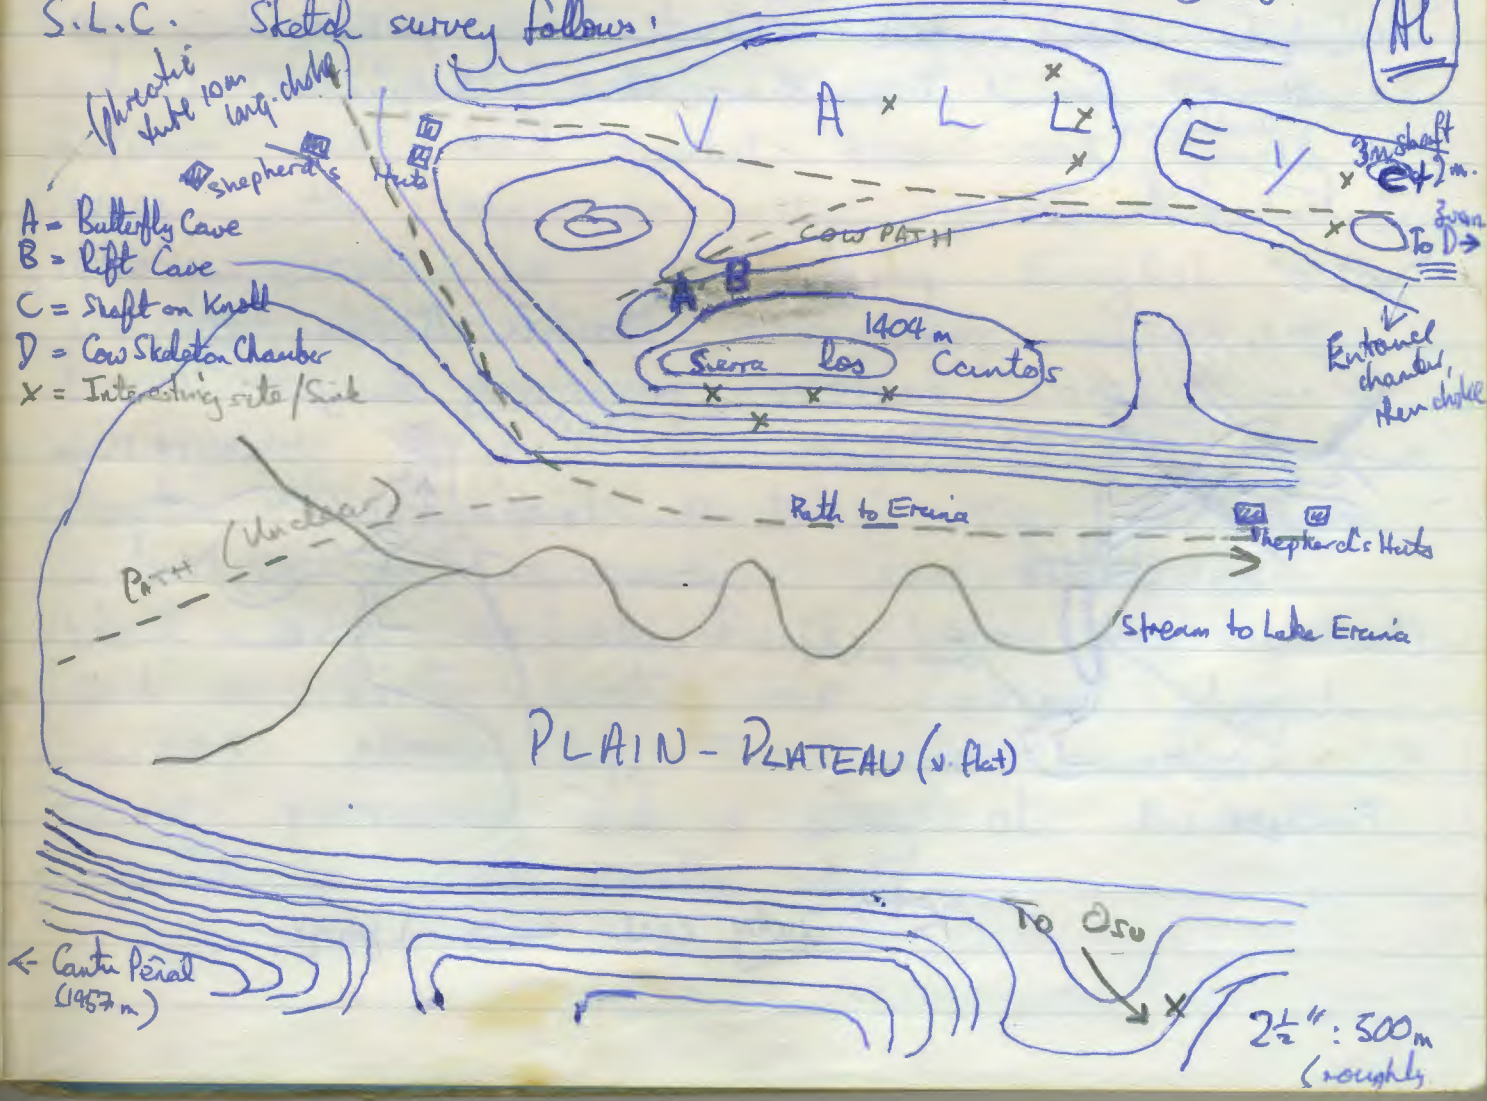 S.L.C. Sketch survey follows.
Al
(phreatic
tube 10m
long. choke
shepherd's Huts
A = Butterfly Cave
B = Rift Cave
C = Shaft on Knoll
D = Cow Skeleton Chamber
X = Interesting site/Sink
V A L L E Y
3m shaft
of 2m.
To D →
COW PATH
A B
1404 m
Sierra los Cantos
Entrance
chamber,
then choke
Path to Ercina
Shepherd's Huts
PATH (Unclear)
Stream to Lake Ercina
PLAIN - PLATEAU (v. flat)
To Osu
← Cantu Peñal
(1957 m)
2½" : 500m
(roughly